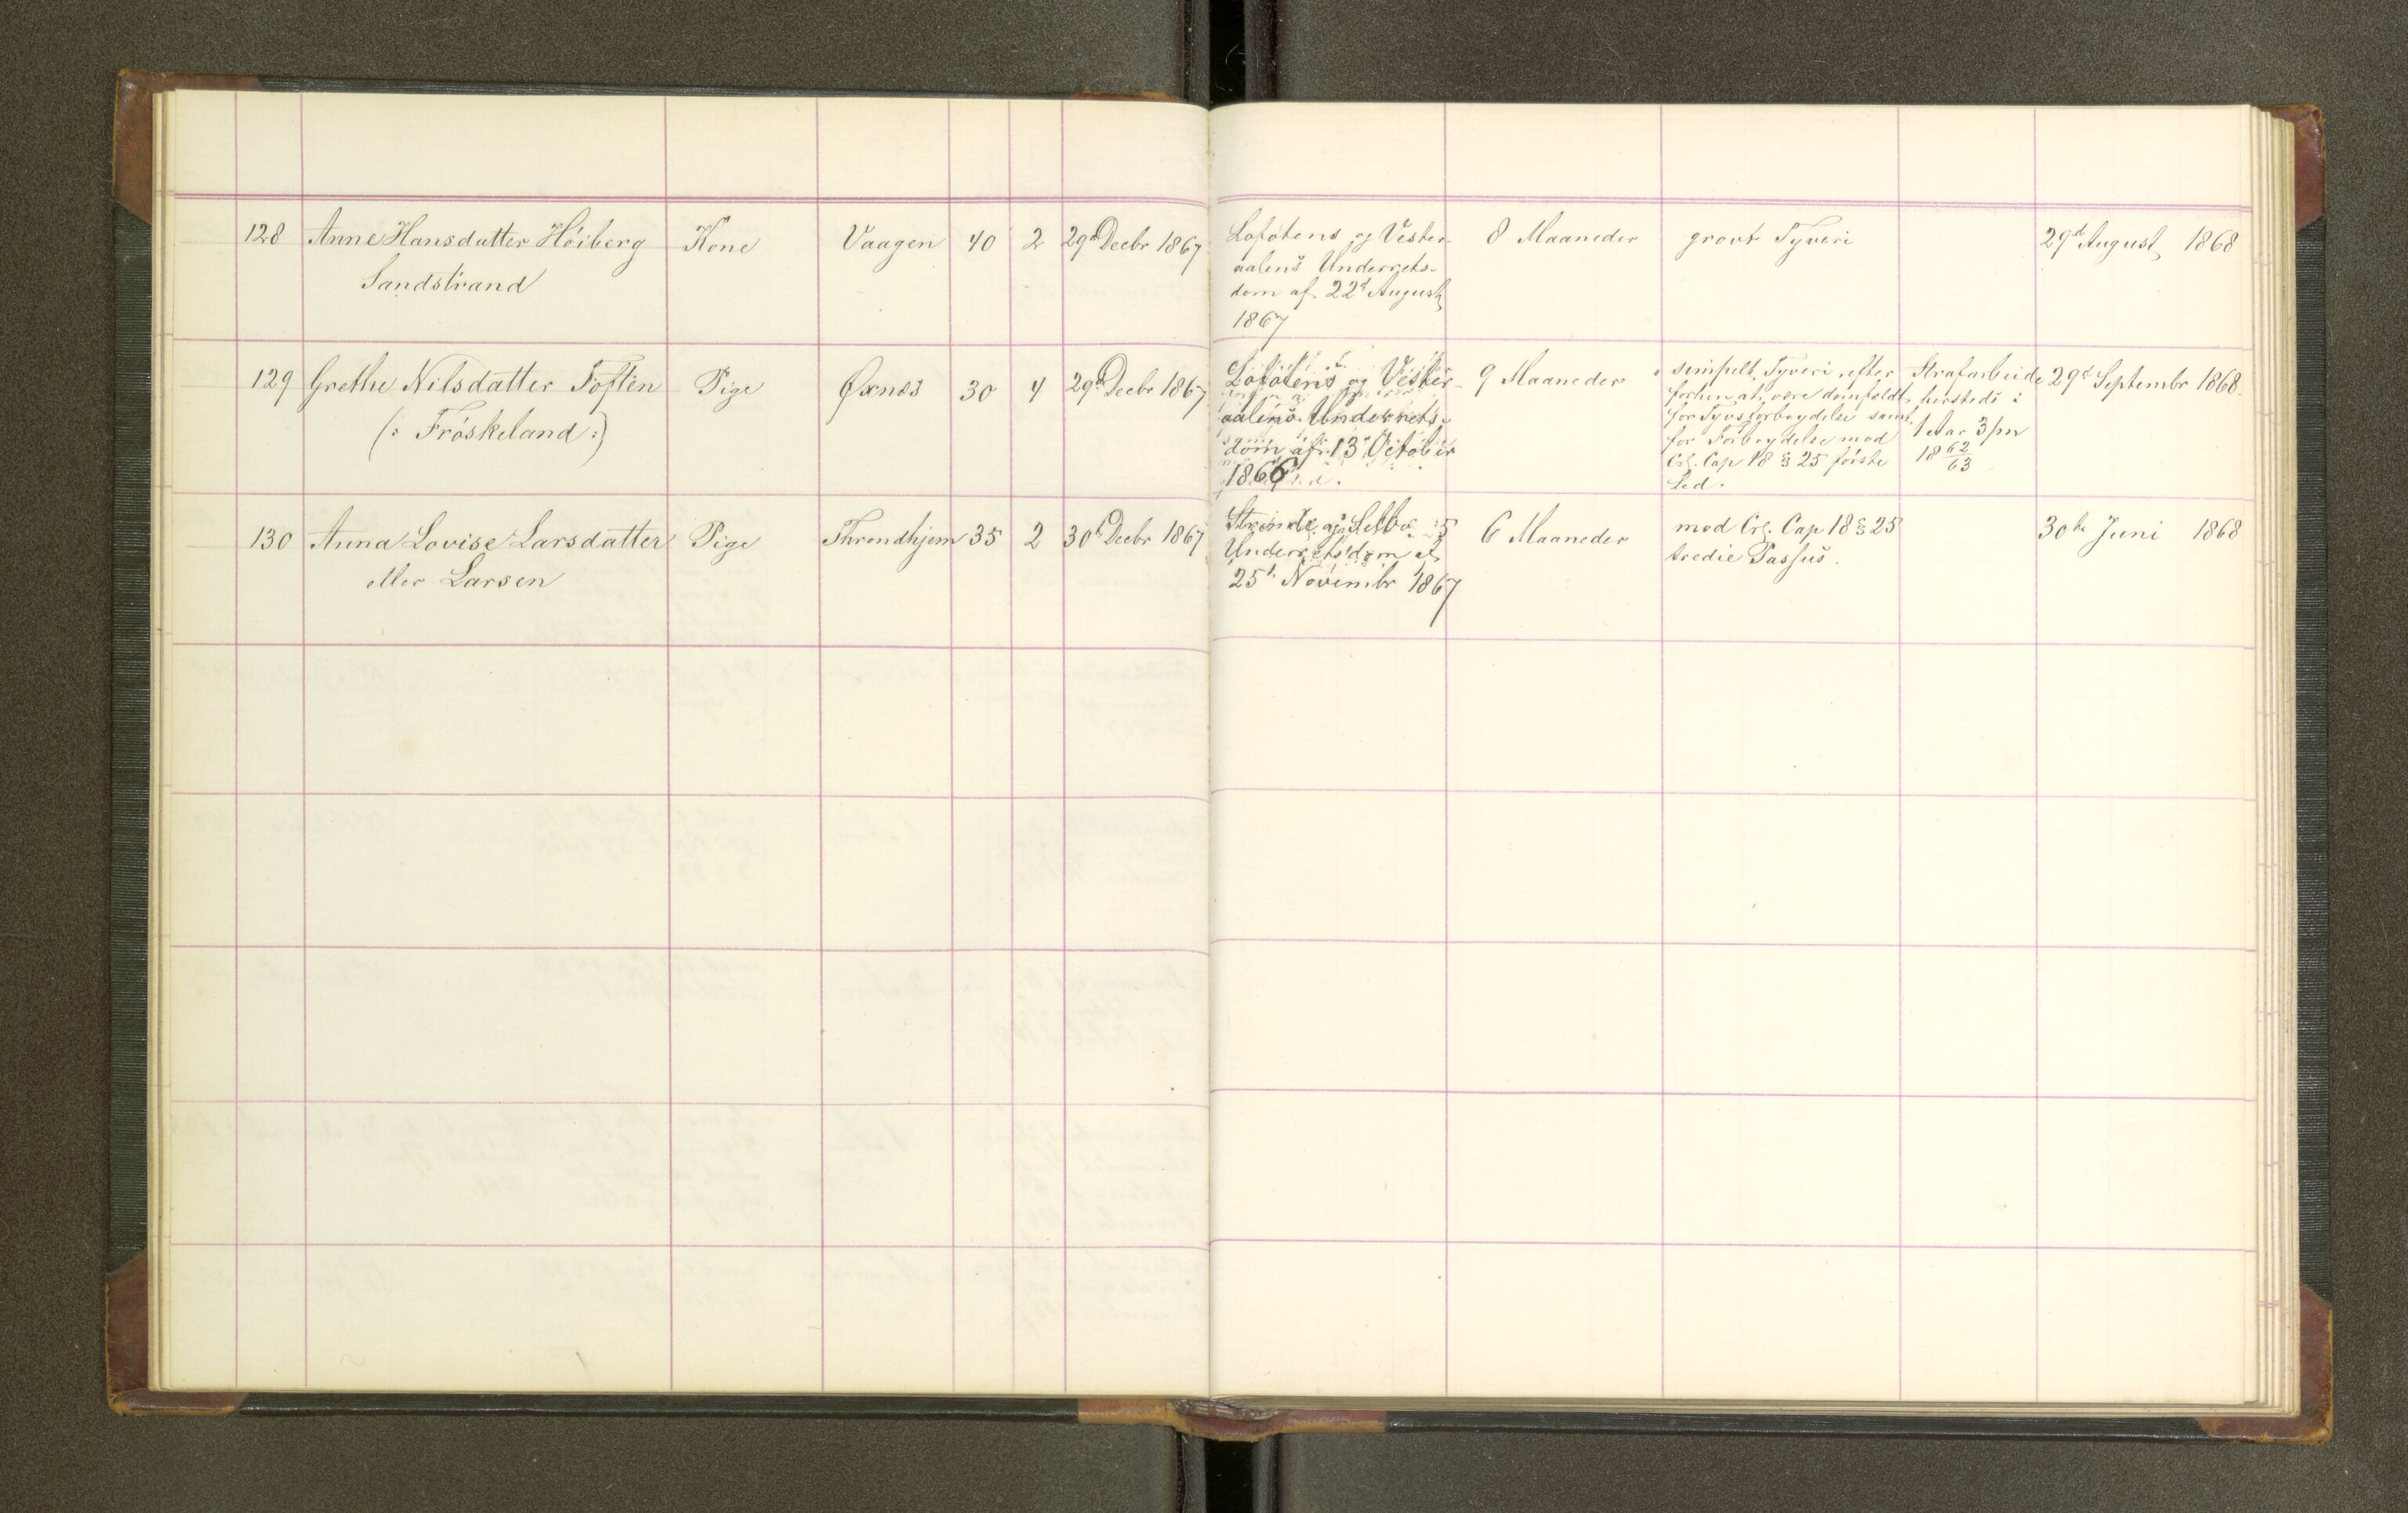 128 Anne Hansdatter Höiberg Kone Vaagen 40 2 29de Decbr 1867 Lofotens og Vester- 8 Maaneder grovt Tyveri 29d August 1868
Sandstrand aalens Underrets-
dom af 22d August
1867
129 Grethe Nilsdatter Toften Pige Øxnæs 30 4 29de Decbr 1867 Lofotens og Vester- 9 Maaneder simpelt Tyveri efter Strafarbeide 29d Septembr 1868.
(: Fröskeland :) aalens Underrets- forhen at være domfældt hersteds i
dom af 13de October for Tyvsforbrydelse samt 1 Aar 3/m
1866 for Forbrydelse mod 18 62/63
Crl. Cap 18 § 25 förste
Led.
130 Anna Lovise Larsdatter Pige Throndhjem 35 2 30te Decbr 1867 Strinde og Selbo 6 Maaneder mod Crl. Cap 18 § 25 30te Juni 1868
eller Larsen Underretsdom af tredie Passus.
25de Novembr 1867